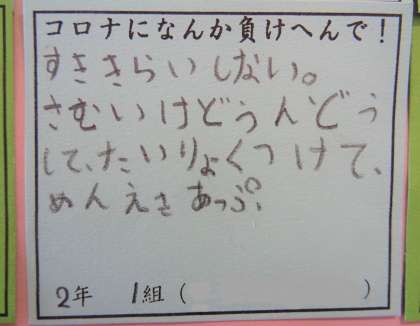 コロナになんか負けへんで！
すききらいしない。
さむいけどうんどう
して、たいりょくつけて、
めんえきあっぷ。
2年 1組( )